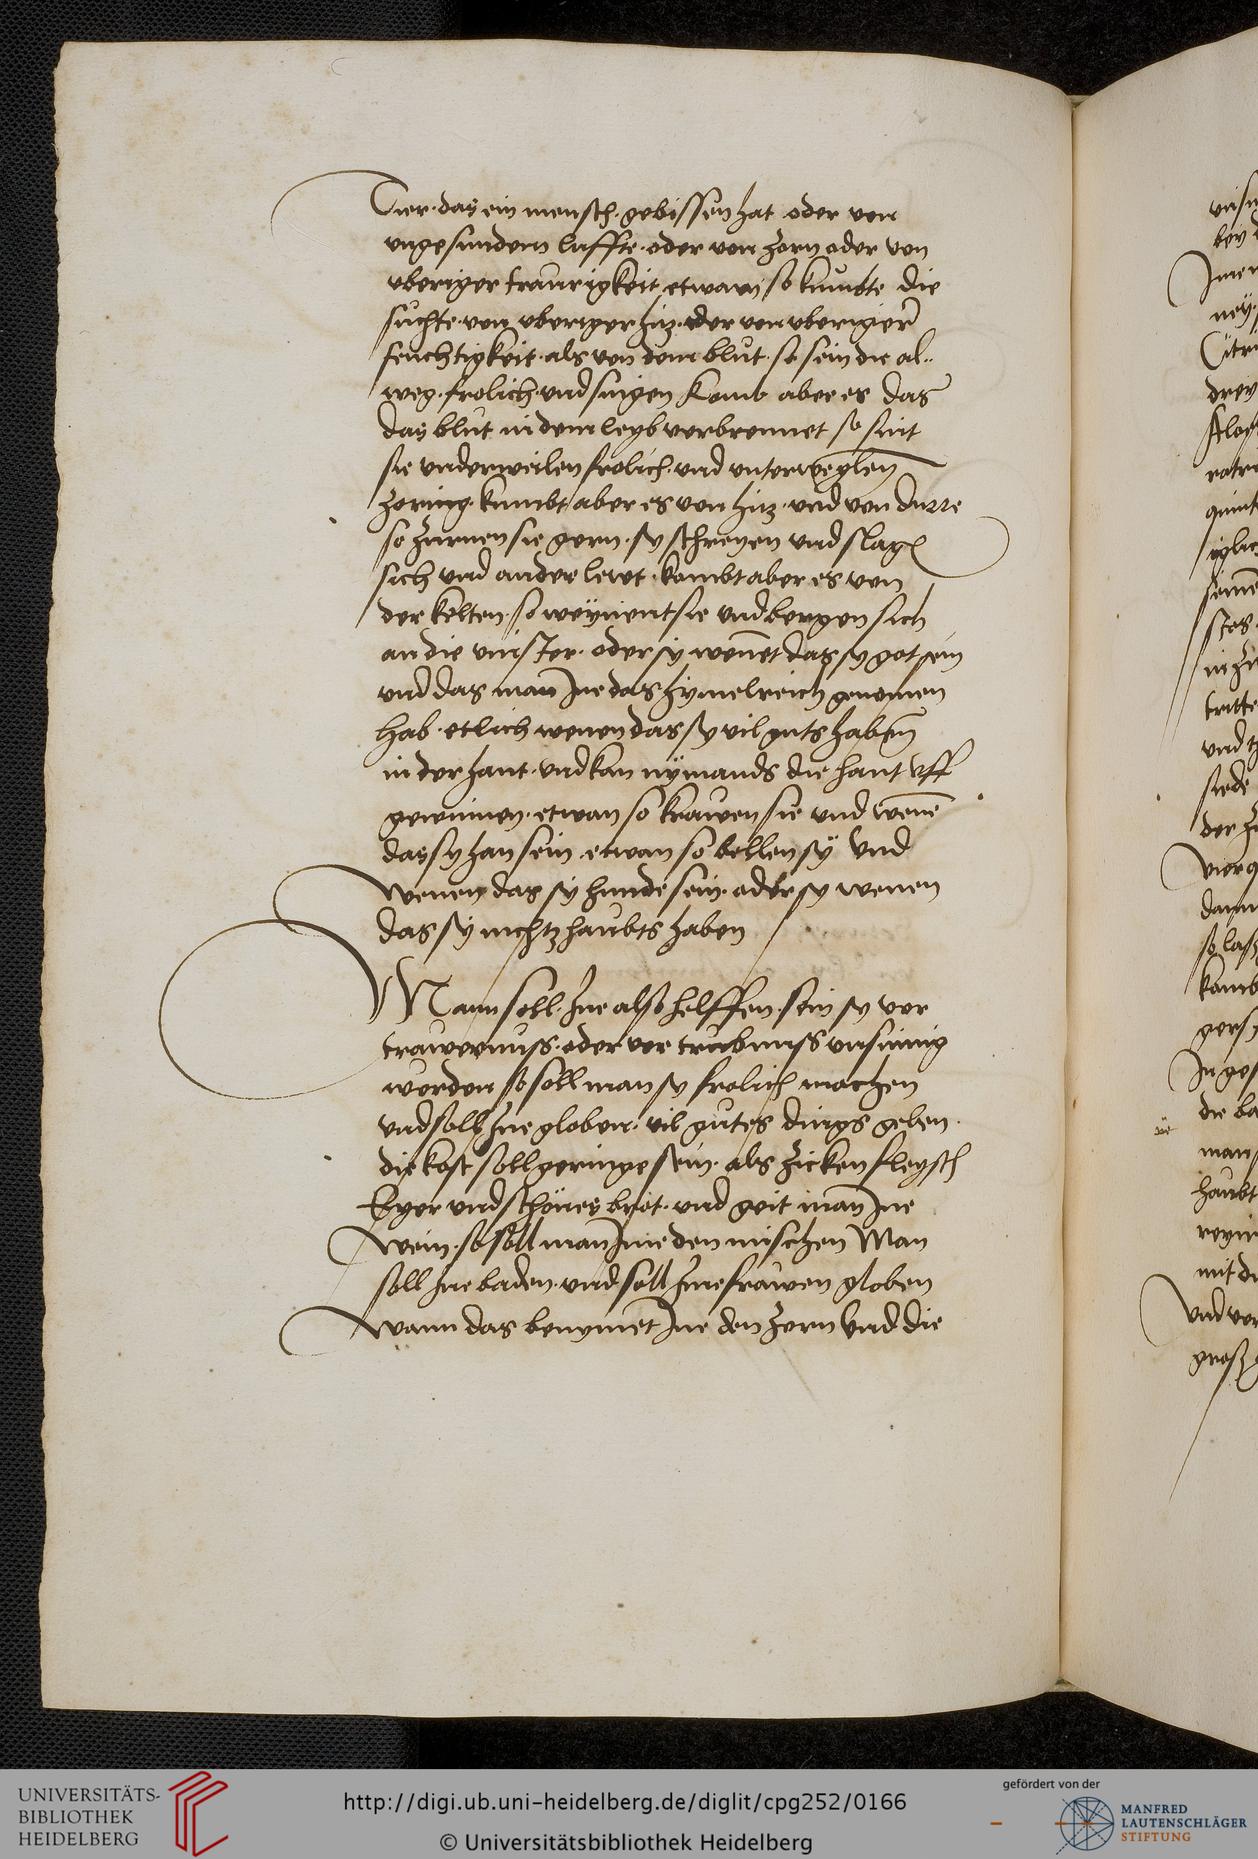 Tier · das ein mensch · gebissen hat oder von
vngesundem luffte · oder von zorn oder von
vberiger traurigkeit etwan so kumbte die
suchte · von vberiger hiz · oder von vberiger
feuchtigkeit · als von dem blut · so sein die al-
weg · frolich · vnd singen Komb aber es das
das blut in dem leyb verbrennet so sint
sie vnderweilen frolich · vnd vnterweylen
zornig · kumbt aber es von hiz · vnd von durre
so zurnen sie gern · sy schreyen vnd slagen
sich vnd ander lewt · kombt aber es von
der kelten · so weynent sie vnd bergen sich
an die vinster · oder sy wenet das sy got sein
vnd das man Ine das hymelreich genomen
hab · etlich wenen das sy vil guts haben
in der hant · vnd kan nymands die hant vff
gewinnen · etwan so krawen sie vnd wene
das sy han sein · etwan so bellen sy vnd
wenen das sy hunde sein · oder sy wenen
das sy nichtz haubts haben
Mann soll · Ine also helffen · sein sy vor
trawernuss · oder vor trubnuss vnsinnig
worden so soll man sy frolich machen
vnd soll Ine globen · vil gutes dings geben ·
die kost soll geringe sein · als zicken fleysch
Eyer vnd schönes brot · vnd geit man Ine
wein · so soll man Ine den mischen Man
soll Ine baden · vnd soll Ine frawen globen
wann das benymet Ine den zorn vnd die
vnsi
bey
Imer
ney
Citri
drey
Aloe
ratri
quint
iglic
seine
stes
in
tritte
vnd
siede
der
vier
dann
so las
komb
gers
In ges
die ba
man
haubt
reyni
mit di
vnd vor
gross
UNIVERSITÄTS-
BIBLIOTHEK
HEIDELBERG
http://digi.ub.uni-heidelberg.de/diglit/cpg252/0166
© Universitätsbibliothek Heidelberg
gefördert von der
MANFRED
LAUTENSCHLÄGER
STIFTUNG